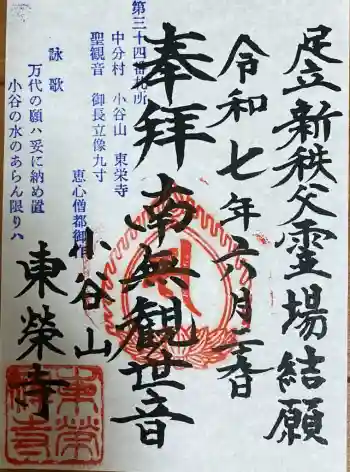 足立新秩父霊場結願
令和七年六月三日
奉拝
南無観世音
第三十四番札所
中分村 小谷山 東栄寺
聖観音 御長立像九寸
恵心僧都御作
詠歌
万代の願ハ妥に納め置
小谷の水のあらん限りハ
小谷山
東榮寺